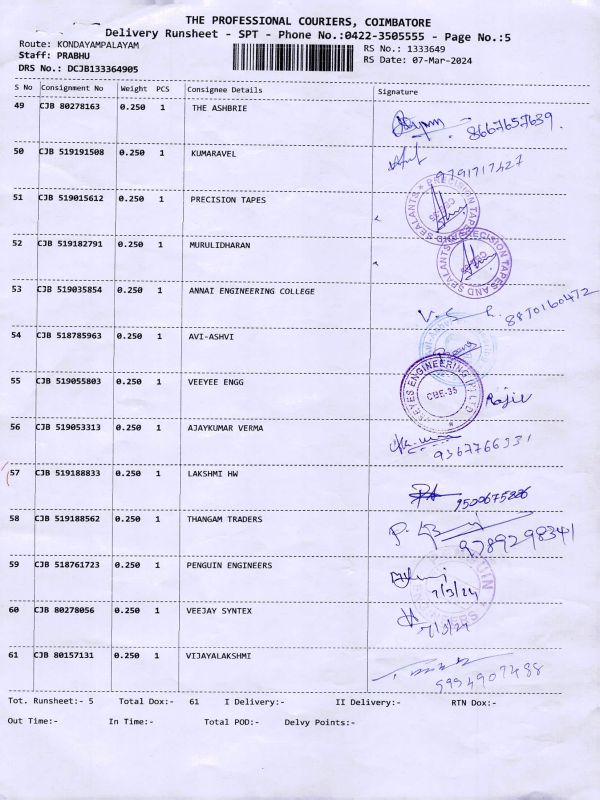 THE PROFESSIONAL COURIERS, COIMBATORE
Delivery Runsheet - SPT - Phone No.:0422-3505555 - Page No.:5
Route: KONDAYAMPALAYAM RS No.: 1333649
Staff: PRABHU RS Date: 07-Mar-2024
DRS No.: DCJB133364905
S No Consignment No Weight PCS Consignee Details Signature
49 CJB 80278163 0.250 1 THE ASHBRIE 8667657639.
50 CJB 519191508 0.250 1 KUMARAVEL 9791717427
51 CJB 519015612 0.250 1 PRECISION TAPES PRECISION TAPES AND SEALANTS
52 CJB 519182791 0.250 1 MURULIDHARAN PRECISION TAPES AND SEALANTS
53 CJB 519035854 0.250 1 ANNAI ENGINEERING COLLEGE 8870160472
54 CJB 518785963 0.250 1 AVI-ASHVI
55 CJB 519055803 0.250 1 VEEYEE ENGG ENGINEERING CBE-35 Rajiv
56 CJB 519053313 0.250 1 AJAYKUMAR VERMA 9367766331
57 CJB 519188833 0.250 1 LAKSHMI HW 9500675886
58 CJB 519188562 0.250 1 THANGAM TRADERS 9789298341
59 CJB 518761723 0.250 1 PENGUIN ENGINEERS 7/3/24
60 CJB 80278056 0.250 1 VEEJAY SYNTEX 7/3/24
61 CJB 80157131 0.250 1 VIJAYALAKSHMI
Tot. Runsheet:- 5 Total Dox:- 61 I Delivery:- II Delivery:- RTN Dox:-
Out Time:- In Time:- Total POD:- Delvy Points:-